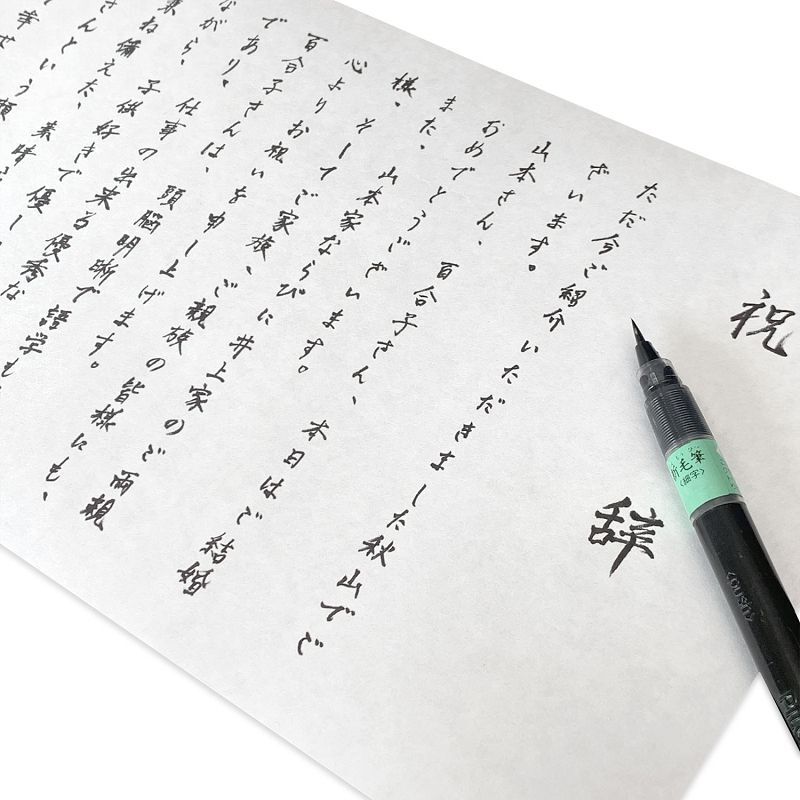 祝辞
ただ今ご紹介いただきました秋山でご
ざいます。
山本さん、百合子さん、本日はご結婚
おめでとうございます。
また、山本家ならびに井上家のご両親
様、そしてご家族、ご親族の皆様にも、
心よりお祝いを申し上げます。
百合子さんは、頭脳明晰で語学も
であり、仕事の出来る優秀な
ながら、子供好きで優し
ね備えた、素晴
さんという
幸せ
毛筆
〈細字〉